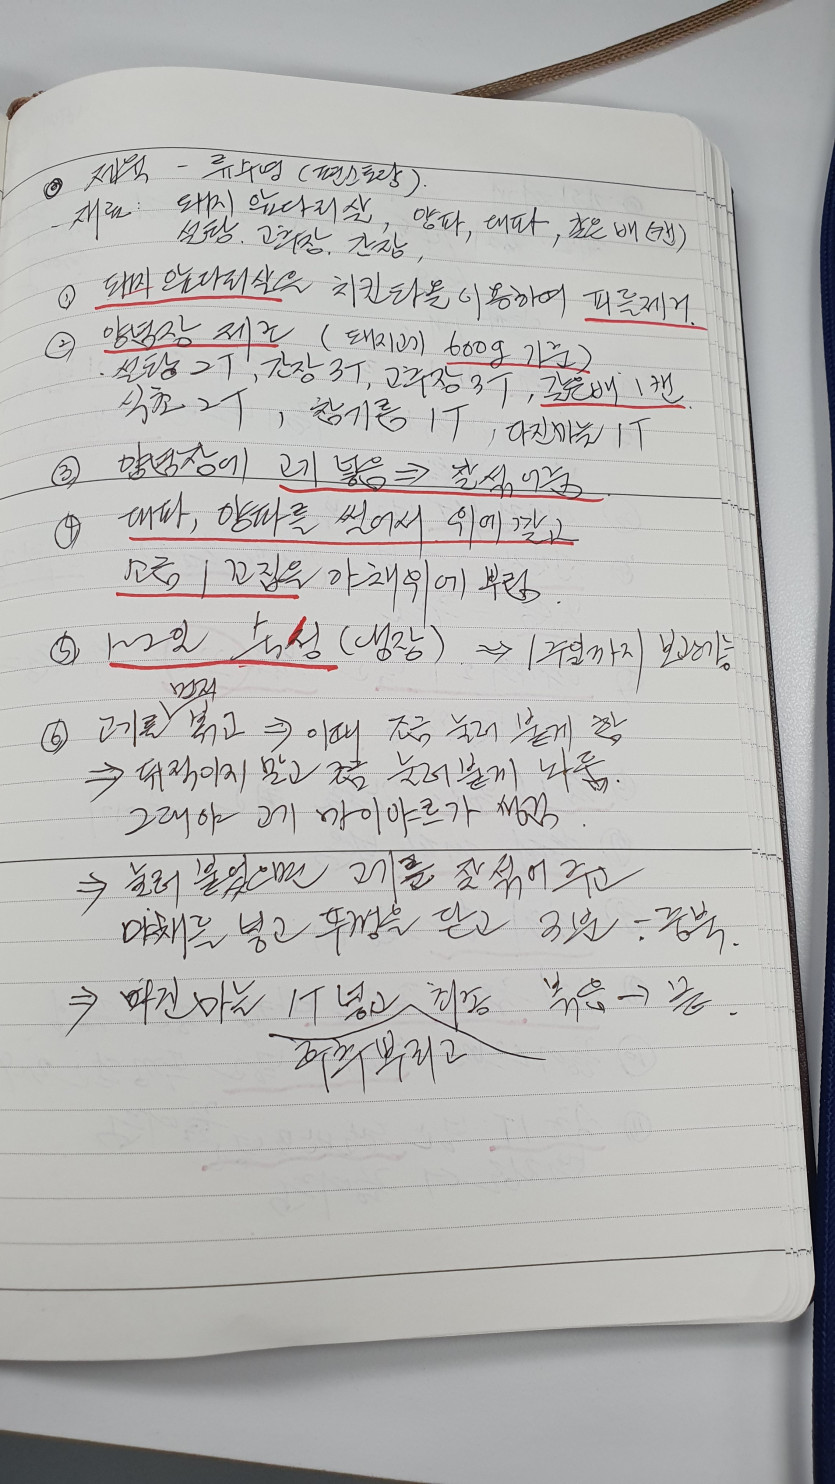 ◎ 제육 - 류수영 (편스토랑).
- 재료: 돼지 앞다리살, 양파, 대파, 갈은배(캔)
설탕. 고추장. 간장,
① 돼지 앞다리살은 치킨타올 이용하여 피를제거.
② 양념장 제조 (돼지고기 600g 기준)
. 설탕 2T, 간장 3T, 고추장 3T, 갈은배 1캔.
식초 2T, 참기름 1T, 다진마늘 1T
③ 양념장에 고기 넣음 ⇒ 잘 섞어줌
④ 대파, 양파를 썰어서 위에 깔고
소금 1꼬집을 야채위에 뿌림.
⑤ 1~2일 숙성 (냉장). ⇒ 1주일까지 보관가능
⑥ 고기를 먼저 볶고 ⇒ 이때 조금 눌러 붙게 함
⇒ 뒤적이지 말고 조금 눌러붙게 놔둠.
그래야 고기 마이야르가 생김.
⇒ 눌러 붙었으면 고기를 잘 섞어 주고
야채를 넣고 뚜껑을 닫고 3분
⇒ 다진 마늘 1T 넣고 후추뿌리고 최종 볶음 → 끝.